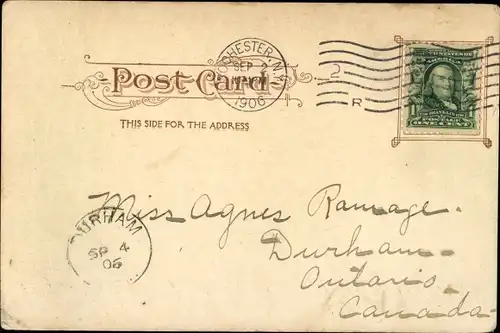 ROCHESTER, N.Y.
SEP 2
1906
2
R
Post Card
THIS SIDE FOR THE ADDRESS
Miss Agnes Ramage.
Durham
Ontario
Canada
DURHAM
SP 4
06